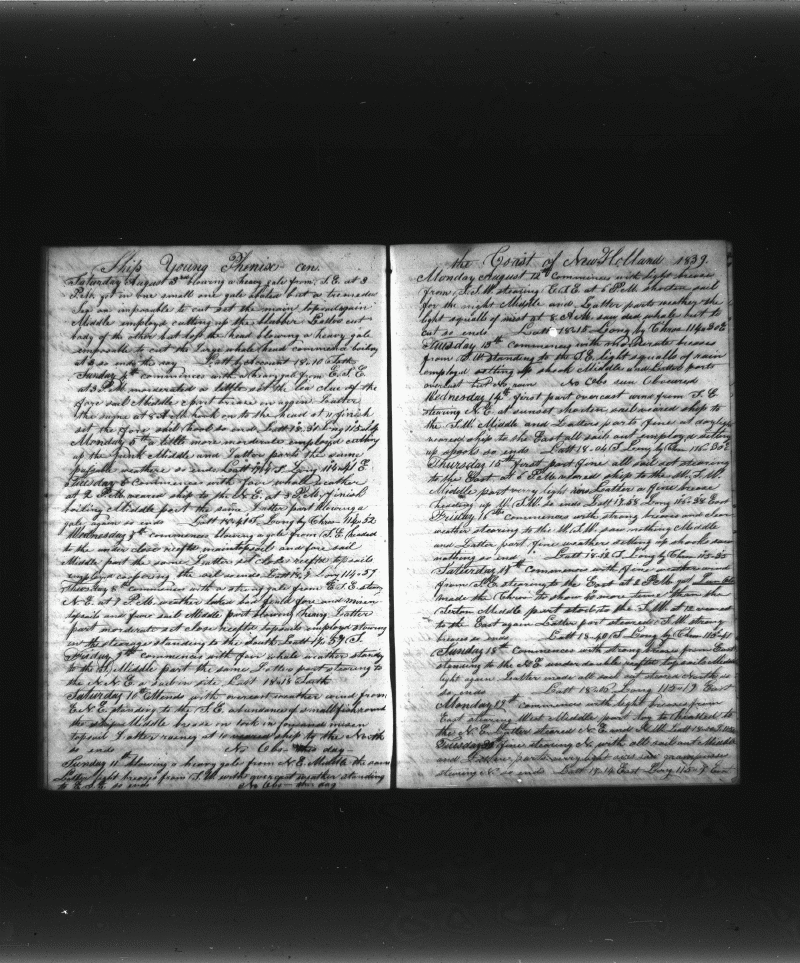 Ship Young Phenix on
Saturday August 3rd blowing a heavy gale from S.E. at 3
P.M. got in one small one gale
impossible to cut set the main topsail again
Middle employd cutting up the blubber Latter cut
body of the other but left the head blowing a heavy gale
impossible to cut the large whale head commenced boiling
at 8 so ends the Latt 18-10 South
Sunday 4th commences with a heavy gale from E.S.E
at 3 P.M. moderated a little set the lee clue of the
fore sail Middle part breese on again Latter
the same at 8 A.M. hook on to the head at 11 finish
set the fore sail so ends Latt 18-31 Long
Monday 5th a little more moderate employd cutting
up the Middle and Latter parts the same
weather so ends Latt S. Long 114-41 E
Tuesday 6 commences with weather
at 2 P.M. weared ship to the N.E. at 3 P.M. finish
boiling Middle part the same Latter part blowing a
gale again so ends Latt Long by Chro 114-52
Wednesday 7th commences blowing a gale from S.E. headed
to the under close reeft maintopsail and fore sail
Middle part the same Latter set close reefd topsails
employd the oil so ends Latt Long 114-37
Thursday 8th commences with a strong gale from E.S.E steering
N.E. at 7 P.M. weather looks bad furld fore and mizen
topsails and fore sail Middle part blowing heavy Latter
part moderate set close reefed topsails employd stowing
standing to the South Latt S.
Friday 9th commences with fair whale weather standing
to the Middle part the same Latter part steering to
the N.N.E. a sail in site Latt 18-18 South
Saturday 10th Attends with overcast weather wind from
E.N.E. standing to the S.E. abundance of small fish round
the ship Middle breese on took in fore and mizen
topsail Latter rainey at 10 weared ship to the North
so ends No Obs this day
Sunday 11th blowing a heavy gale from N.E. Middle the same
Latter light breeze from S.W. with overcast weather standing
to E.S.E. so ends No Obs this day
the Coast of New Holland 1839.
Monday August 12th commences with light breese
from S.S.W. steering E.S.E at 6 P.M. shorten sail
for the night Middle and Latter parts weather the
light squalls of mist at 8 A.M. saw ded whale but to
cut so ends Latt 18-18 Long by Chro 114-30 E
Tuesday 13th commences with moderate breeses
from S.W. standing to the S.E. light squalls of rain
employd setting up shook Middle and Latter parts
overcast but no rain No Obs sun Obscured
Wednesday 14th first part overcast wind from S.E
stearing N.E. at sunset shorten sail weared ship to
the S.W. Middle and Latter parts fine at daylight
weared ship to the East all sail out employd setting
up shooks so ends Latt 18-06 S Long by Chro
Thursday 15th first part fine all sail set stearing
to the East at 6 P.M. weared ship to the W.S.W
Middle part very light Latter a fine breese
heading up W.S.W. so ends Latt 17-58 Long East
Friday 16th commences with strong breese and clear
weather stearing to the W.S.W. saw nothing Middle
and Latter part fine weather setting up shooks saw
nothing so ends Latt 18-12 S Long by Chro
Saturday 17th commences with fine weather wind
from S.E. steering to the East at 2 P.M.
made the Chro to shew more than the
Middle part steerd to the S.W. at 12 weared
to the East again Latter part stearing S.W. strong
breese so ends Latt 18-40 S Long by Chro 115-41
Sunday 18th commences with strong breese from East
standing to the N.E. under double reefed topsails Middle
light again Latter made all sail out steared North
so ends Latt 18-06 Long 115-19 East
Monday 19th commences with light breeses from
East stearing West Middle part headed to
the N.E. Latter steared N.E. and N.W.
Tuesday 20th fine stearing N. with all sail out Middle
and Latter parts very light
stearing N. so ends Latt 17-14 East Long 115-9 East